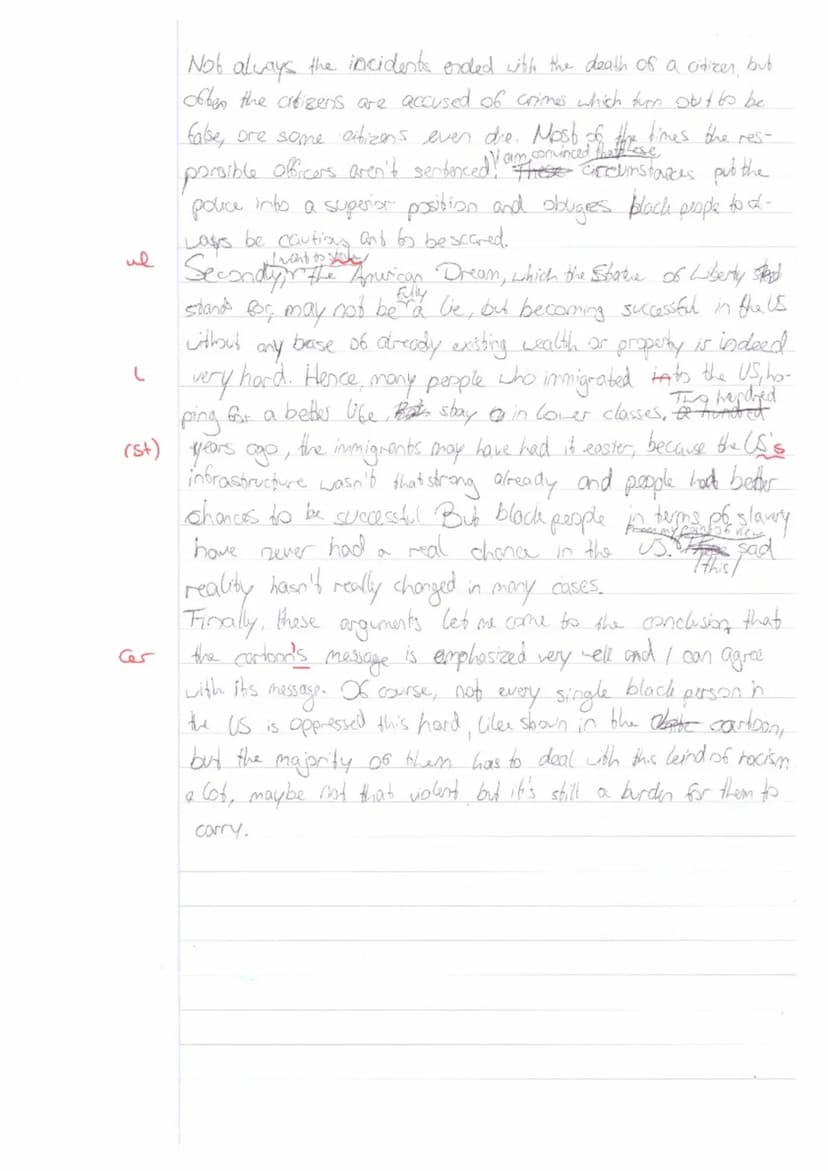 Not always the incidents ended with the death of a citizen, but
often the citizens are accused of crimes which turn out to be
false, ore some citizens even die. Most of the times the res-
I am convinced that these
ponsible officers aren't sentenced! These circumstances put the
police into a superior position and obliges black people to al-
ways be cautious and to be scared.
I want to
ul Secondly, the American Dream, which the Statue of Liberty
fully
stands for, may not be a lie, but becoming successful in the US
without any base of already existing wealth or property is indeed
l very hard. Hence, many people who immigrated into the US, ho-
hundred
ping for a better life, stay in lower classes.
(St) years ago, the immigrants may have had it easier, because the US's
infrastructure wasn't that strong already and people had better
chances to be successful. But black people in terms of slavery
From my point of view
have never had a real chance in the US. sad
this
reality hasn't really changed in many cases.
Finally, these arguments let me come to the conclusion, that
the cartoon's message is emphasized very well and I can agree
with its message. Of course, not every single black person in
the US is oppressed this hard, like shown in the cartoon,
but the majority of them has to deal with this kind of racism
a lot, maybe not that violent but it's still a burden for them to
carry.